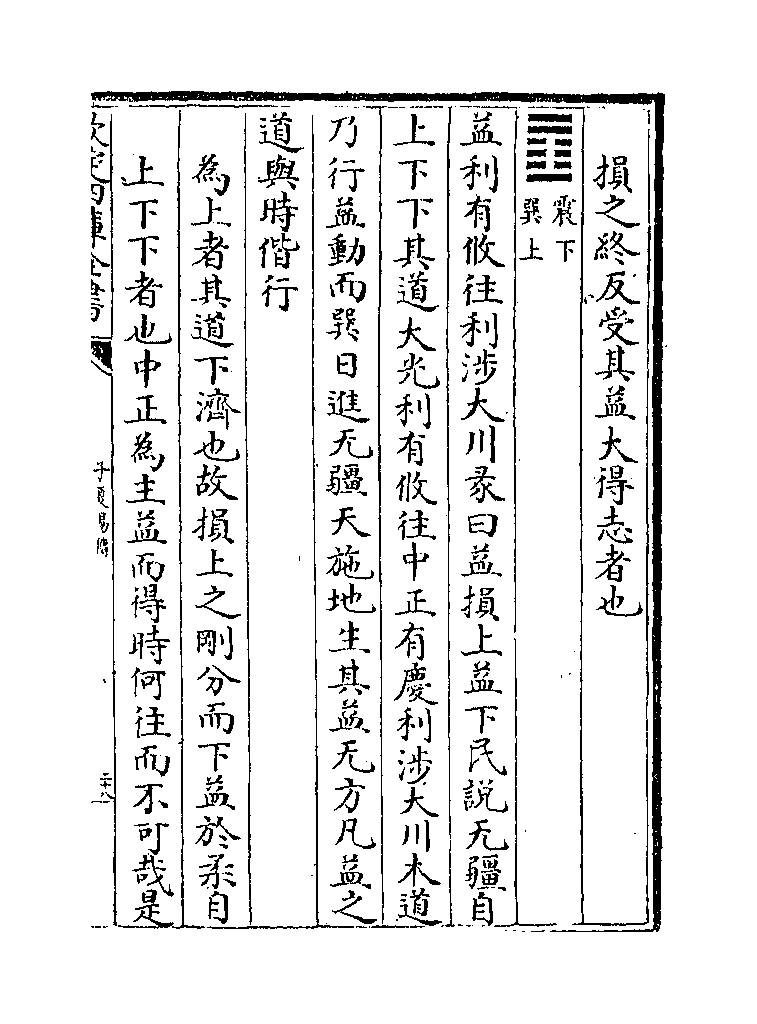 損之終反受其益大得志者也
䷩
震下
巽上
益利有攸往利涉大川彖曰益損上益下民說无疆自
上下下其道大光利有攸往中正有慶利涉大川木道
乃行益動而巽日進无疆天施地生其益无方凡益之
道與時偕行
為上者其道下濟也故損上之剛分而下益於柔自
上下下者也中正為主益而得時何往而不可哉是
欽定四庫全書
子夏易傳
二十八